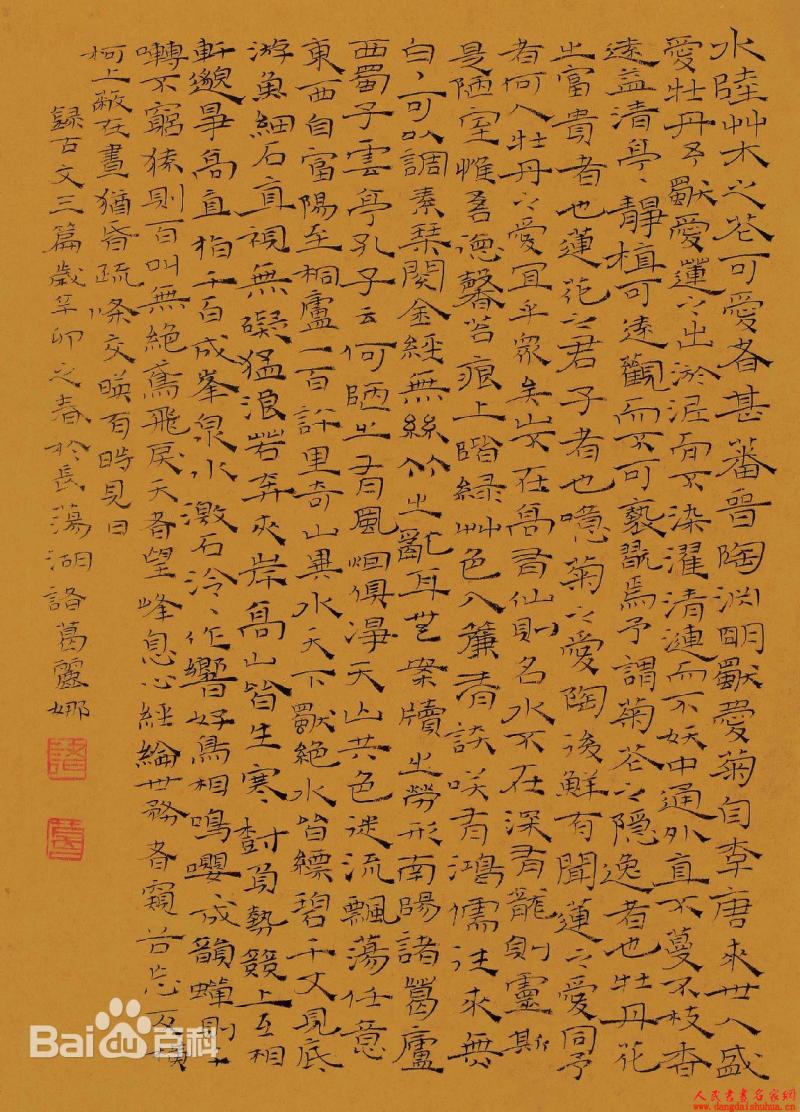 水陸艸木之花可愛者甚蕃晉陶淵明獨愛菊自李唐來世人盛
愛牡丹予獨愛蓮之出淤泥而不染濯清漣而不妖中通外直不蔓不枝香
遠益清亭〻靜植可遠觀而不可褻翫焉予謂菊花之隱逸者也牡丹花
之富貴者也蓮花之君子者也噫菊之愛陶後鮮有聞蓮之愛同予
者何人牡丹之愛宜乎眾矣山不在高有仙則名水不在深有龍則靈斯
是陋室惟吾德馨苔痕上階綠艸色入簾青談咲有鴻儒往來無
白丁可以調素琴閱金經無絲竹之亂耳無案牘之勞形南陽諸葛廬
西蜀子雲亭孔子云何陋之有風煙俱淨天山共色從流飄蕩任意
東西自富陽至桐廬一百許里奇山異水天下獨絕水皆縹碧千丈見底
游魚細石直視無礙猛浪若奔夾岸高山皆生寒樹負勢競上互相
軒邈爭高直指千百成峯泉水激石泠〻作響好鳥相鳴嚶成韻蟬則千
囀不窮猿則百叫無絕鳶飛戾天者望峰息心經綸世務者窺谷忘反橫
柯上蔽在晝猶昏疏條交暎有時見日
錄古文三篇歲辛卯之春於長蕩湖諸葛麗娜
Baidu百科
人民书画名家网
www.dangdaishuhua.cn